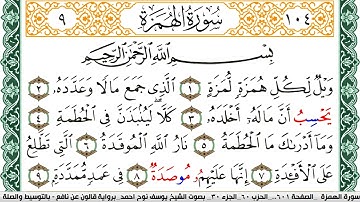 ٩ سُورَةُ الْهُمَزَةِ ١٠٤
بِسْمِ اللَّهِ الرَّحْمَٰنِ الرَّحِيمِ
وَيْلٌ لِّكُلِّ هُمَزَةٍ لُّمَزَةٍ ١ الَّذِي جَمَعَ مَالًا وَعَدَّدَهُ ٢
يَحْسِبُ أَنَّ مَالَهُ أَخْلَدَهُ ٣ كَلَّا لَيُنبَذَنَّ فِي الْحُطَمَةِ ٤
وَمَا أَدْرَىٰكَ مَا الْحُطَمَةُ ٥ نَارُ اللَّهِ الْمُوقَدَةُ ٦ الَّتِي تَطَّلِعُ
عَلَى الْأَفْئِدَةِ ٧ إِنَّهَا عَلَيْهِم مُّوصَدَةٌ ٨ فِي عَمَدٍ مُّمَدَّدَةٍ ٩
سورة الهمزة .. الصفحة ٦٠١ .. الحزب ٦٠ .. الجزء ٣٠ .. بصوت الشيخ يوسف نوح أحمد .. برواية قالون عن نافع - بالتوسيط والصلة